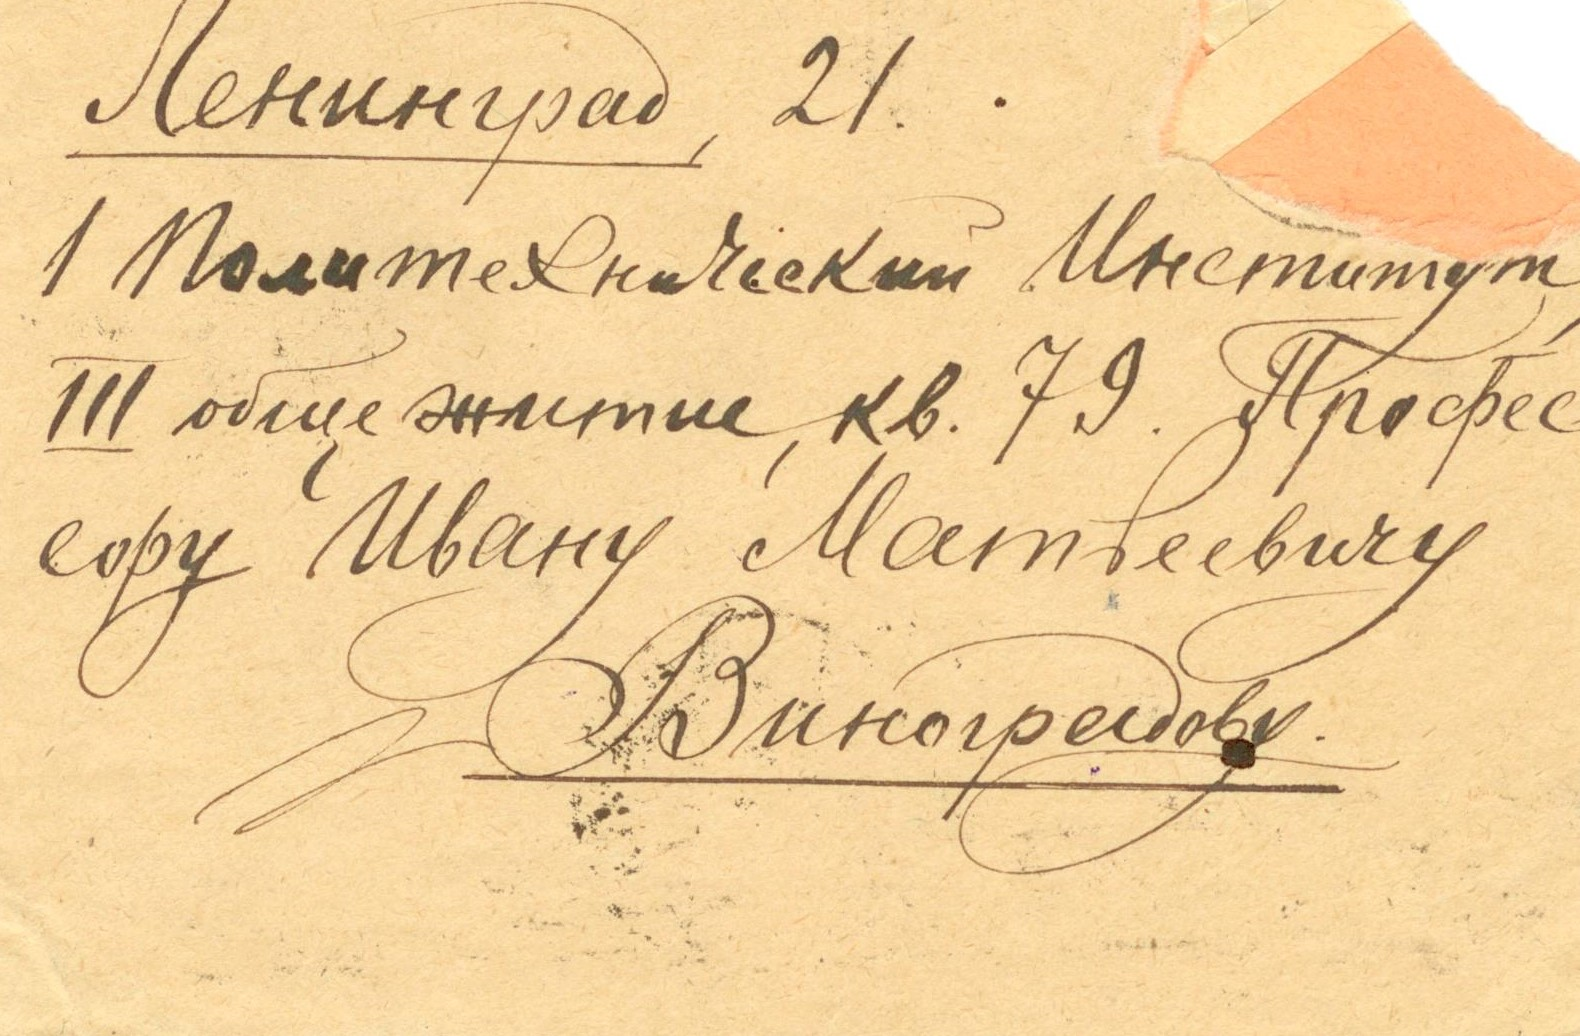 Ленинград, 21.
1 Политехнический Институт,
III общежитие, кв. 79. Профес
сору Ивану Матвеевичу
Виноградову.